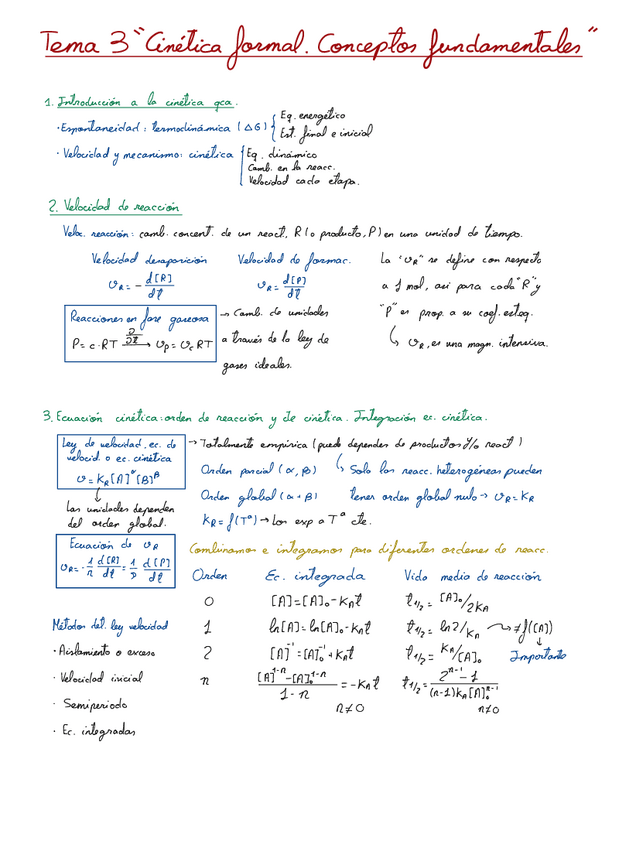 Tema 3 "Cinética formal. Conceptos fundamentales"
1. Introducción a la cinética qca.
· Espontaneidad: termodinámica (ΔG) { Eq. energético
Est. final e inicial
· Velocidad y mecanismo: cinética { Eq. dinámico
Camb. en la reacc.
Velocidad cada etapa.
2. Velocidad de reacción
Veloc. reacción: camb. concent. de un react, R (o producto, P) en una unidad de tiempo.
Velocidad desaparición Velocidad de formac. La "υR" se define con respecto
υR = - d[R]/dt υR = d[P]/dt a 1 mol, así para cada "R" y
"P" es prop. a su coef. esteq.
↳ υR, es una magn. intensiva.
Reacciones en fase gaseosa → Camb. de unidades
P = c·RT ∂/∂t → υP = υc RT a través de la ley de
gases ideales.
3. Ecuación cinética: orden de reacción y cte cinética. Integración ec. cinética.
Ley de velocidad, ec. de
velocid. o ec. cinética
υ = KR[A]^α[B]^β
→ Totalmente empírica (puede depender de productos y/o react)
Orden parcial (α, β) ↳ Solo las reacc. heterogéneas pueden
Orden global (α+β) tener orden global nulo → υR = KR
KR = f(Tª) → Los exp a Tª cte.
↓
Las unidades dependen
del orden global.
Ecuación de υR
υR = - 1/r d[R]/dt = 1/p d[P]/dt
Combinamos e integramos para diferentes ordenes de reacc.
Orden Ec. integrada Vida media de reacción
0 [A]=[A]₀-KAt t1/2 = [A]₀/2KA
1 ln[A]=ln[A]₀-KAt t1/2 = ln2/KA → ≠f([A])
↓
Importante
2 [A]⁻¹=[A]₀⁻¹+KAt t1/2 = KA/[A]₀
n [A]^1-n-[A]₀^1-n / 1-n = -KAt t1/2 = 2^n-1 -1 / (n-1)KA[A]₀^n-1
n≠0 n≠0
Métodos det. ley velocidad
· Aislamiento o exceso
· Velocidad inicial
· Semiperiodo
· Ec. integradas